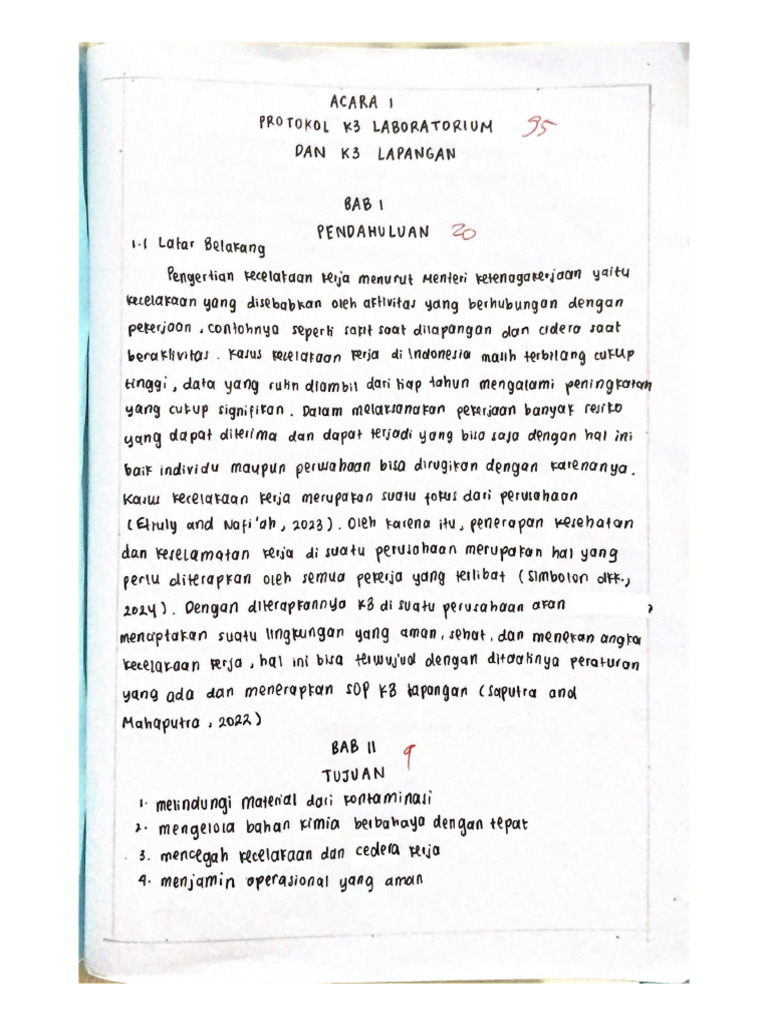 ACARA 1
PROTOKOL K3 LABORATORIUM 95
DAN K3 LAPANGAN
BAB 1
PENDAHULUAN 20
1.1 Latar Belakang
Pengertian kecelakaan kerja menurut Menteri ketenagakerjaan yaitu
kecelakaan yang disebabkan oleh aktivitas yang berhubungan dengan
pekerjaan, contohnya seperti sakit saat dilapangan dan cidera saat
beraktivitas. Kasus kecelakaan kerja di Indonesia masih terbilang cukup
tinggi, data yang rutin diambil dari tiap tahun mengalami peningkatan
yang cukup signifikan. Dalam melaksanakan pekerjaan banyak resiko
yang dapat diterima dan dapat terjadi yang bisa saja dengan hal ini
baik individu maupun perusahaan bisa dirugikan dengan karenanya.
Kasus kecelakaan kerja merupakan suatu fokus dari perusahaan
(Efruly and Nafi'ah, 2023). Oleh karena itu, penerapan kesehatan
dan keselamatan kerja di suatu perusahaan merupakan hal yang
perlu diterapkan oleh semua pekerja yang terlibat (Simbolon dkk.,
2024). Dengan diterapkannya K3 di suatu perusahaan akan
menciptakan suatu lingkungan yang aman, sehat, dan menekan angka
kecelakaan kerja, hal ini bisa terwujud dengan ditaatinya peraturan
yang ada dan menerapkan SOP K3 lapangan (Saputra and
Mahaputra, 2022)
BAB II 9
TUJUAN
1. melindungi material dari kontaminasi
2. mengelola bahan kimia berbahaya dengan tepat
3. mencegah kecelakaan dan cedera kerja
4. menjamin operasional yang aman